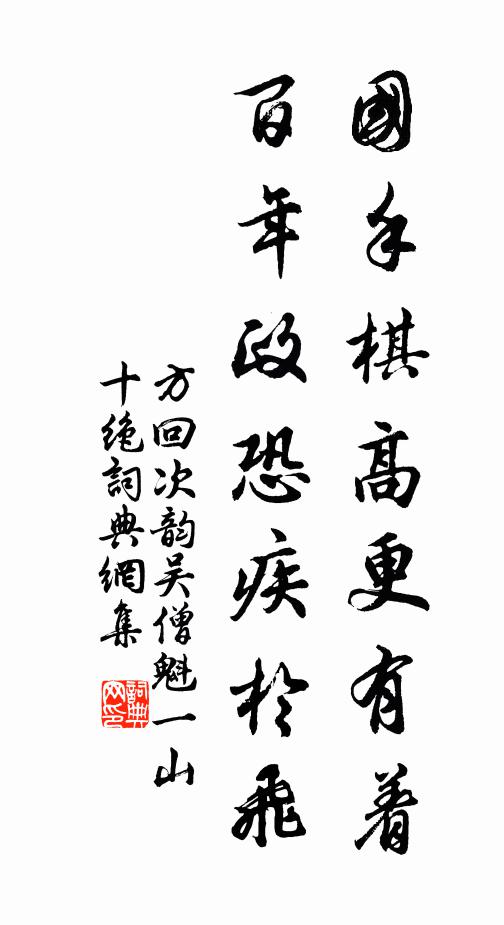 國手棋高更有着
百年政恐疾於飛
方回次韵吴僧魁一山
十绝詞典網集
詞典網印